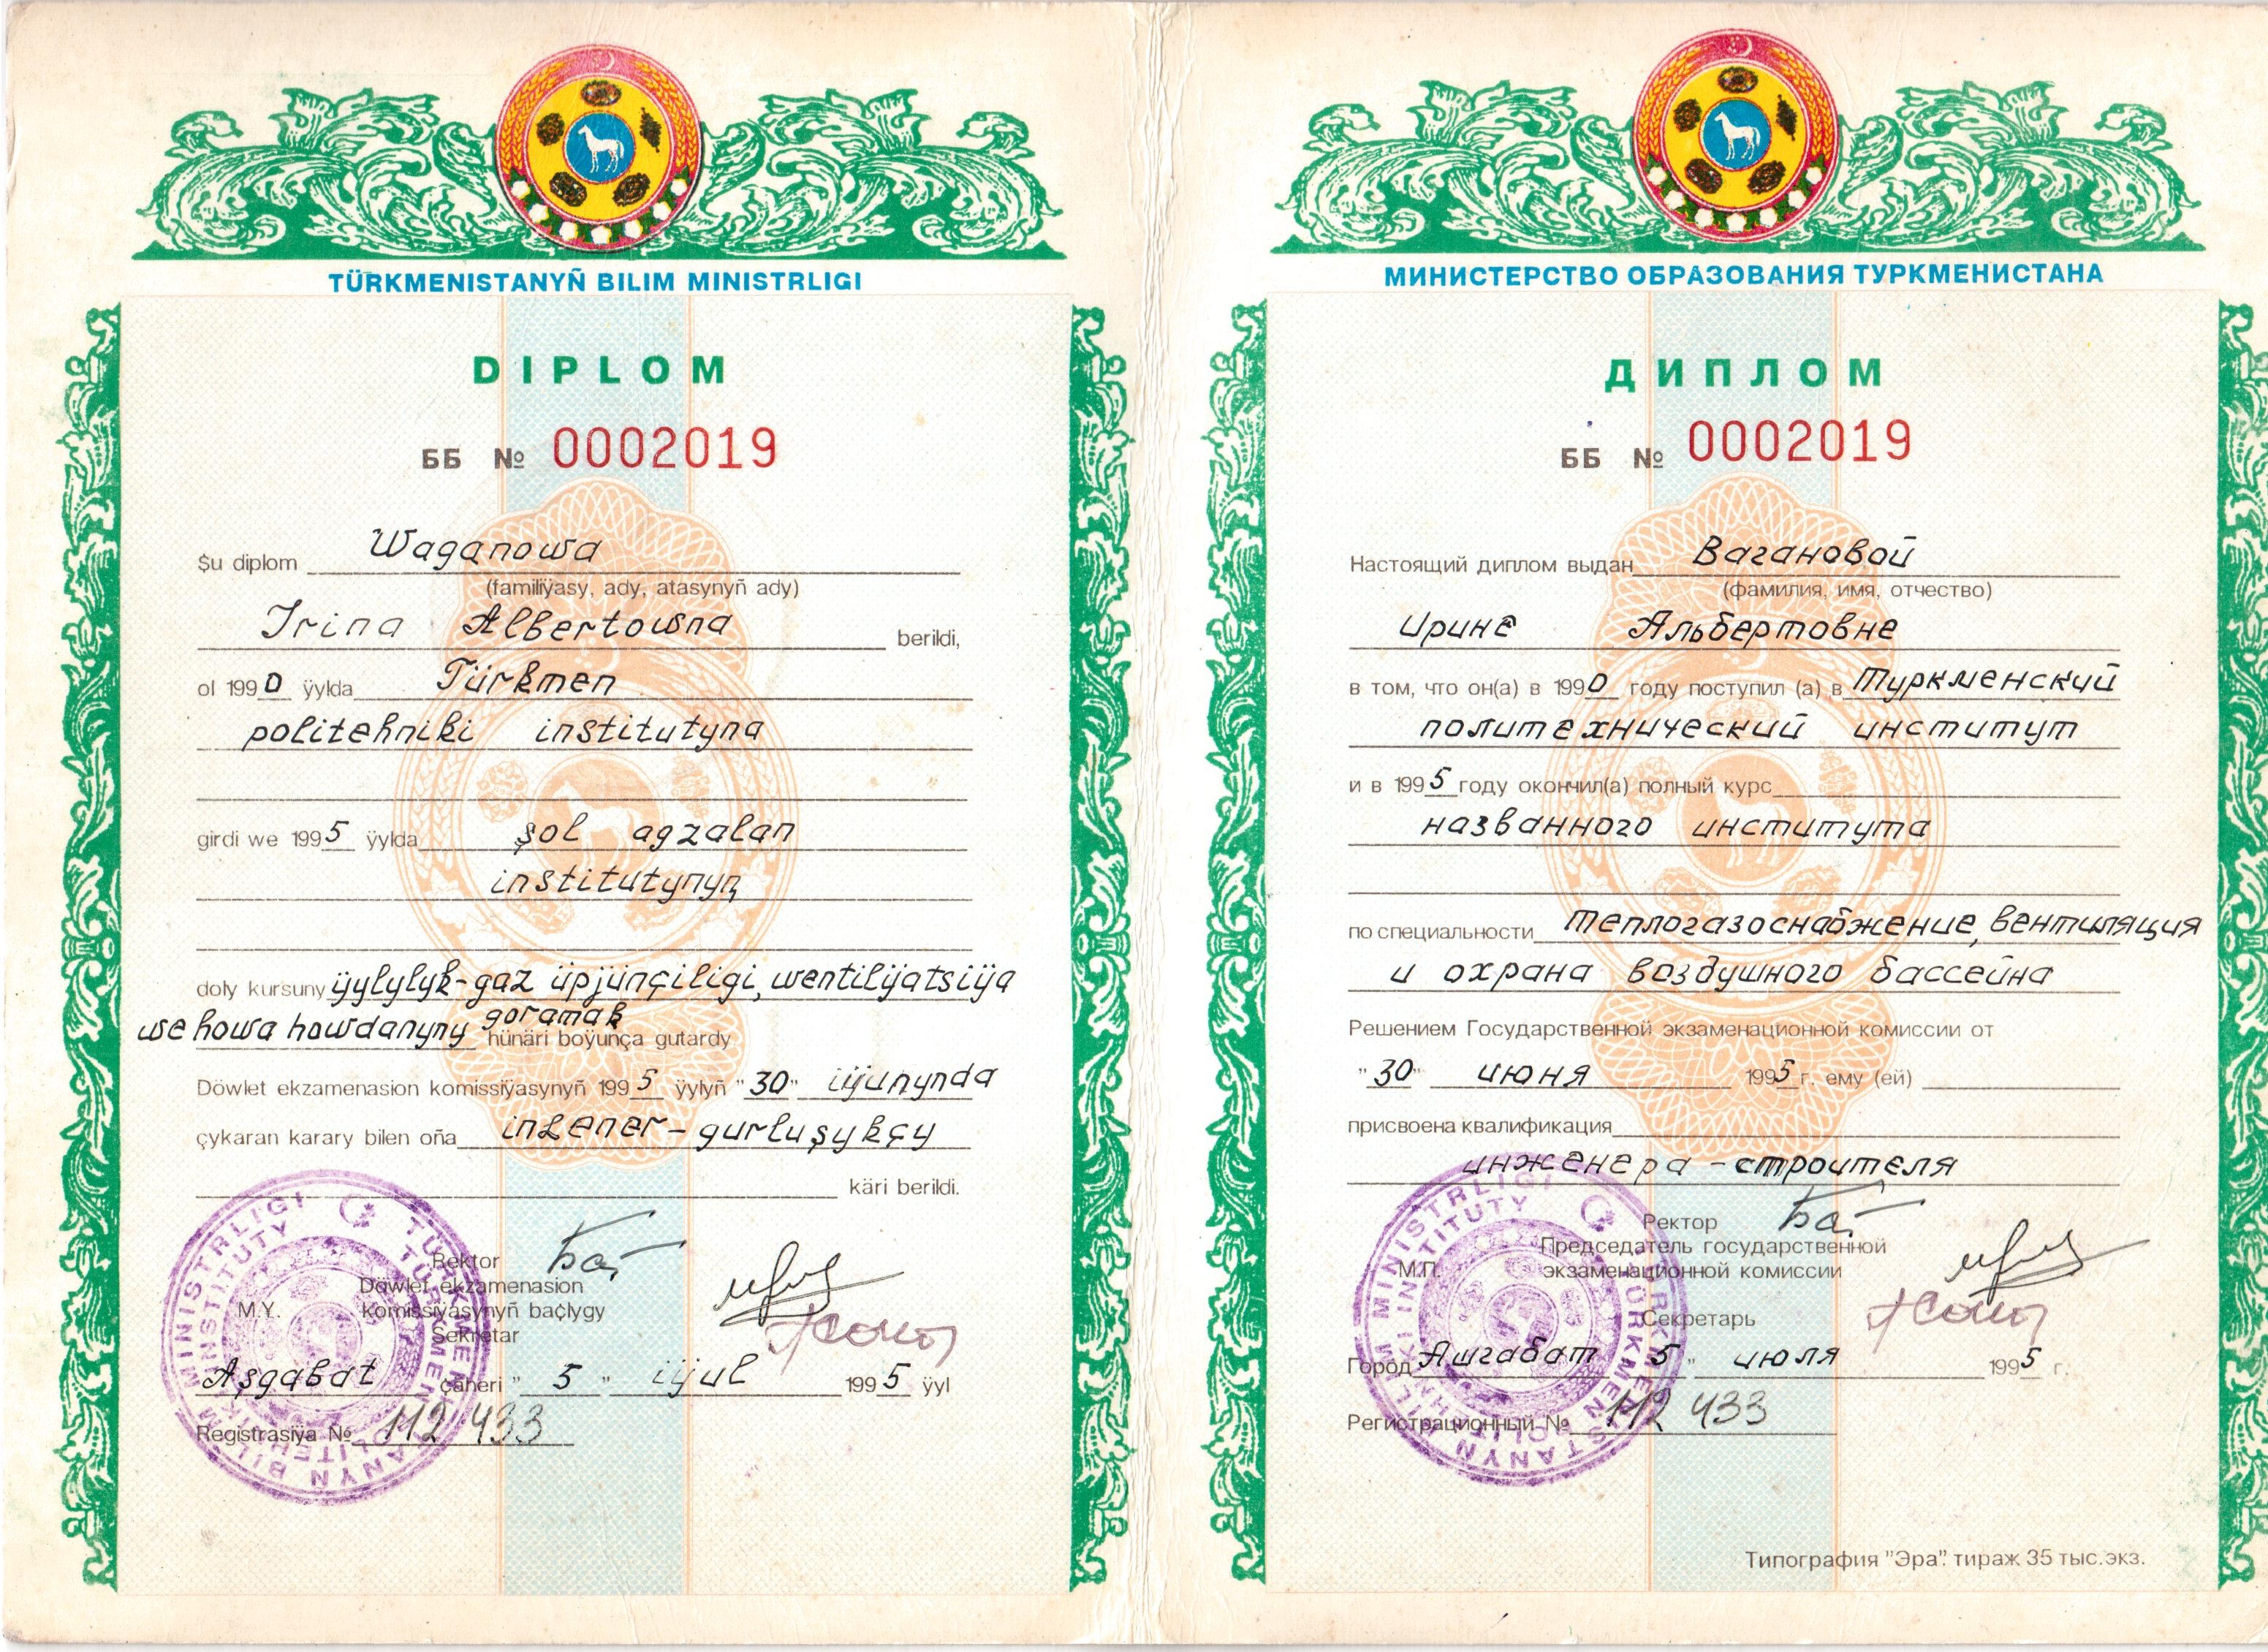 TÜRKMENISTANYÑ BILIM MINISTRLIGI
DIPLOM
ББ № 0002019
Şu diplom Waganowa
(familiýasy, ady, atasynyñ ady)
Irina Albertowna berildi,
ol 1990 ÿylda Türkmen
politehniki institutyna
girdi we 1995 ÿylda şol agzalan
institutynyņ
doly kursuny ÿylylyk-gaz üpjünçiligi, wentilÿatsiÿa
we howa howdanyny goramak hünäri boÿunça gutardy
Döwlet ekzamenasion komissiÿasynyñ 1995 ÿylyñ "30" iÿunynda
çykaran karary bilen oña inžener-gurluşykçy
käri berildi.
Rektor
Döwlet ekzamenasion
M.Y. komissiÿasynyñ başlygy
Sekretar
Aşgabat şäheri " 5 " iÿul 1995 ÿyl
Registrasiÿa № 112 433
МИНИСТЕРСТВО ОБРАЗОВАНИЯ ТУРКМЕНИСТАНА
ДИПЛОМ
ББ № 0002019
Настоящий диплом выдан Вагановой
(фамилия, имя, отчество)
Ирине Альбертовне
в том, что он(а) в 1990 году поступил (а) в Туркменский
политехнический институт
и в 1995 году окончил(а) полный курс
названного института
по специальности теплогазоснабжение, вентиляция
и охрана воздушного бассейна
Решением Государственной экзаменационной комиссии от
"30" июня 1995 г. ему (ей)
присвоена квалификация
инженера-строителя
Ректор
Председатель государственной
М.П. экзаменационной комиссии
Секретарь
Город Ашгабат 5 " июля 1995 г.
Регистрационный № 112 433
Типография "Эра". тираж 35 тыс.экз.